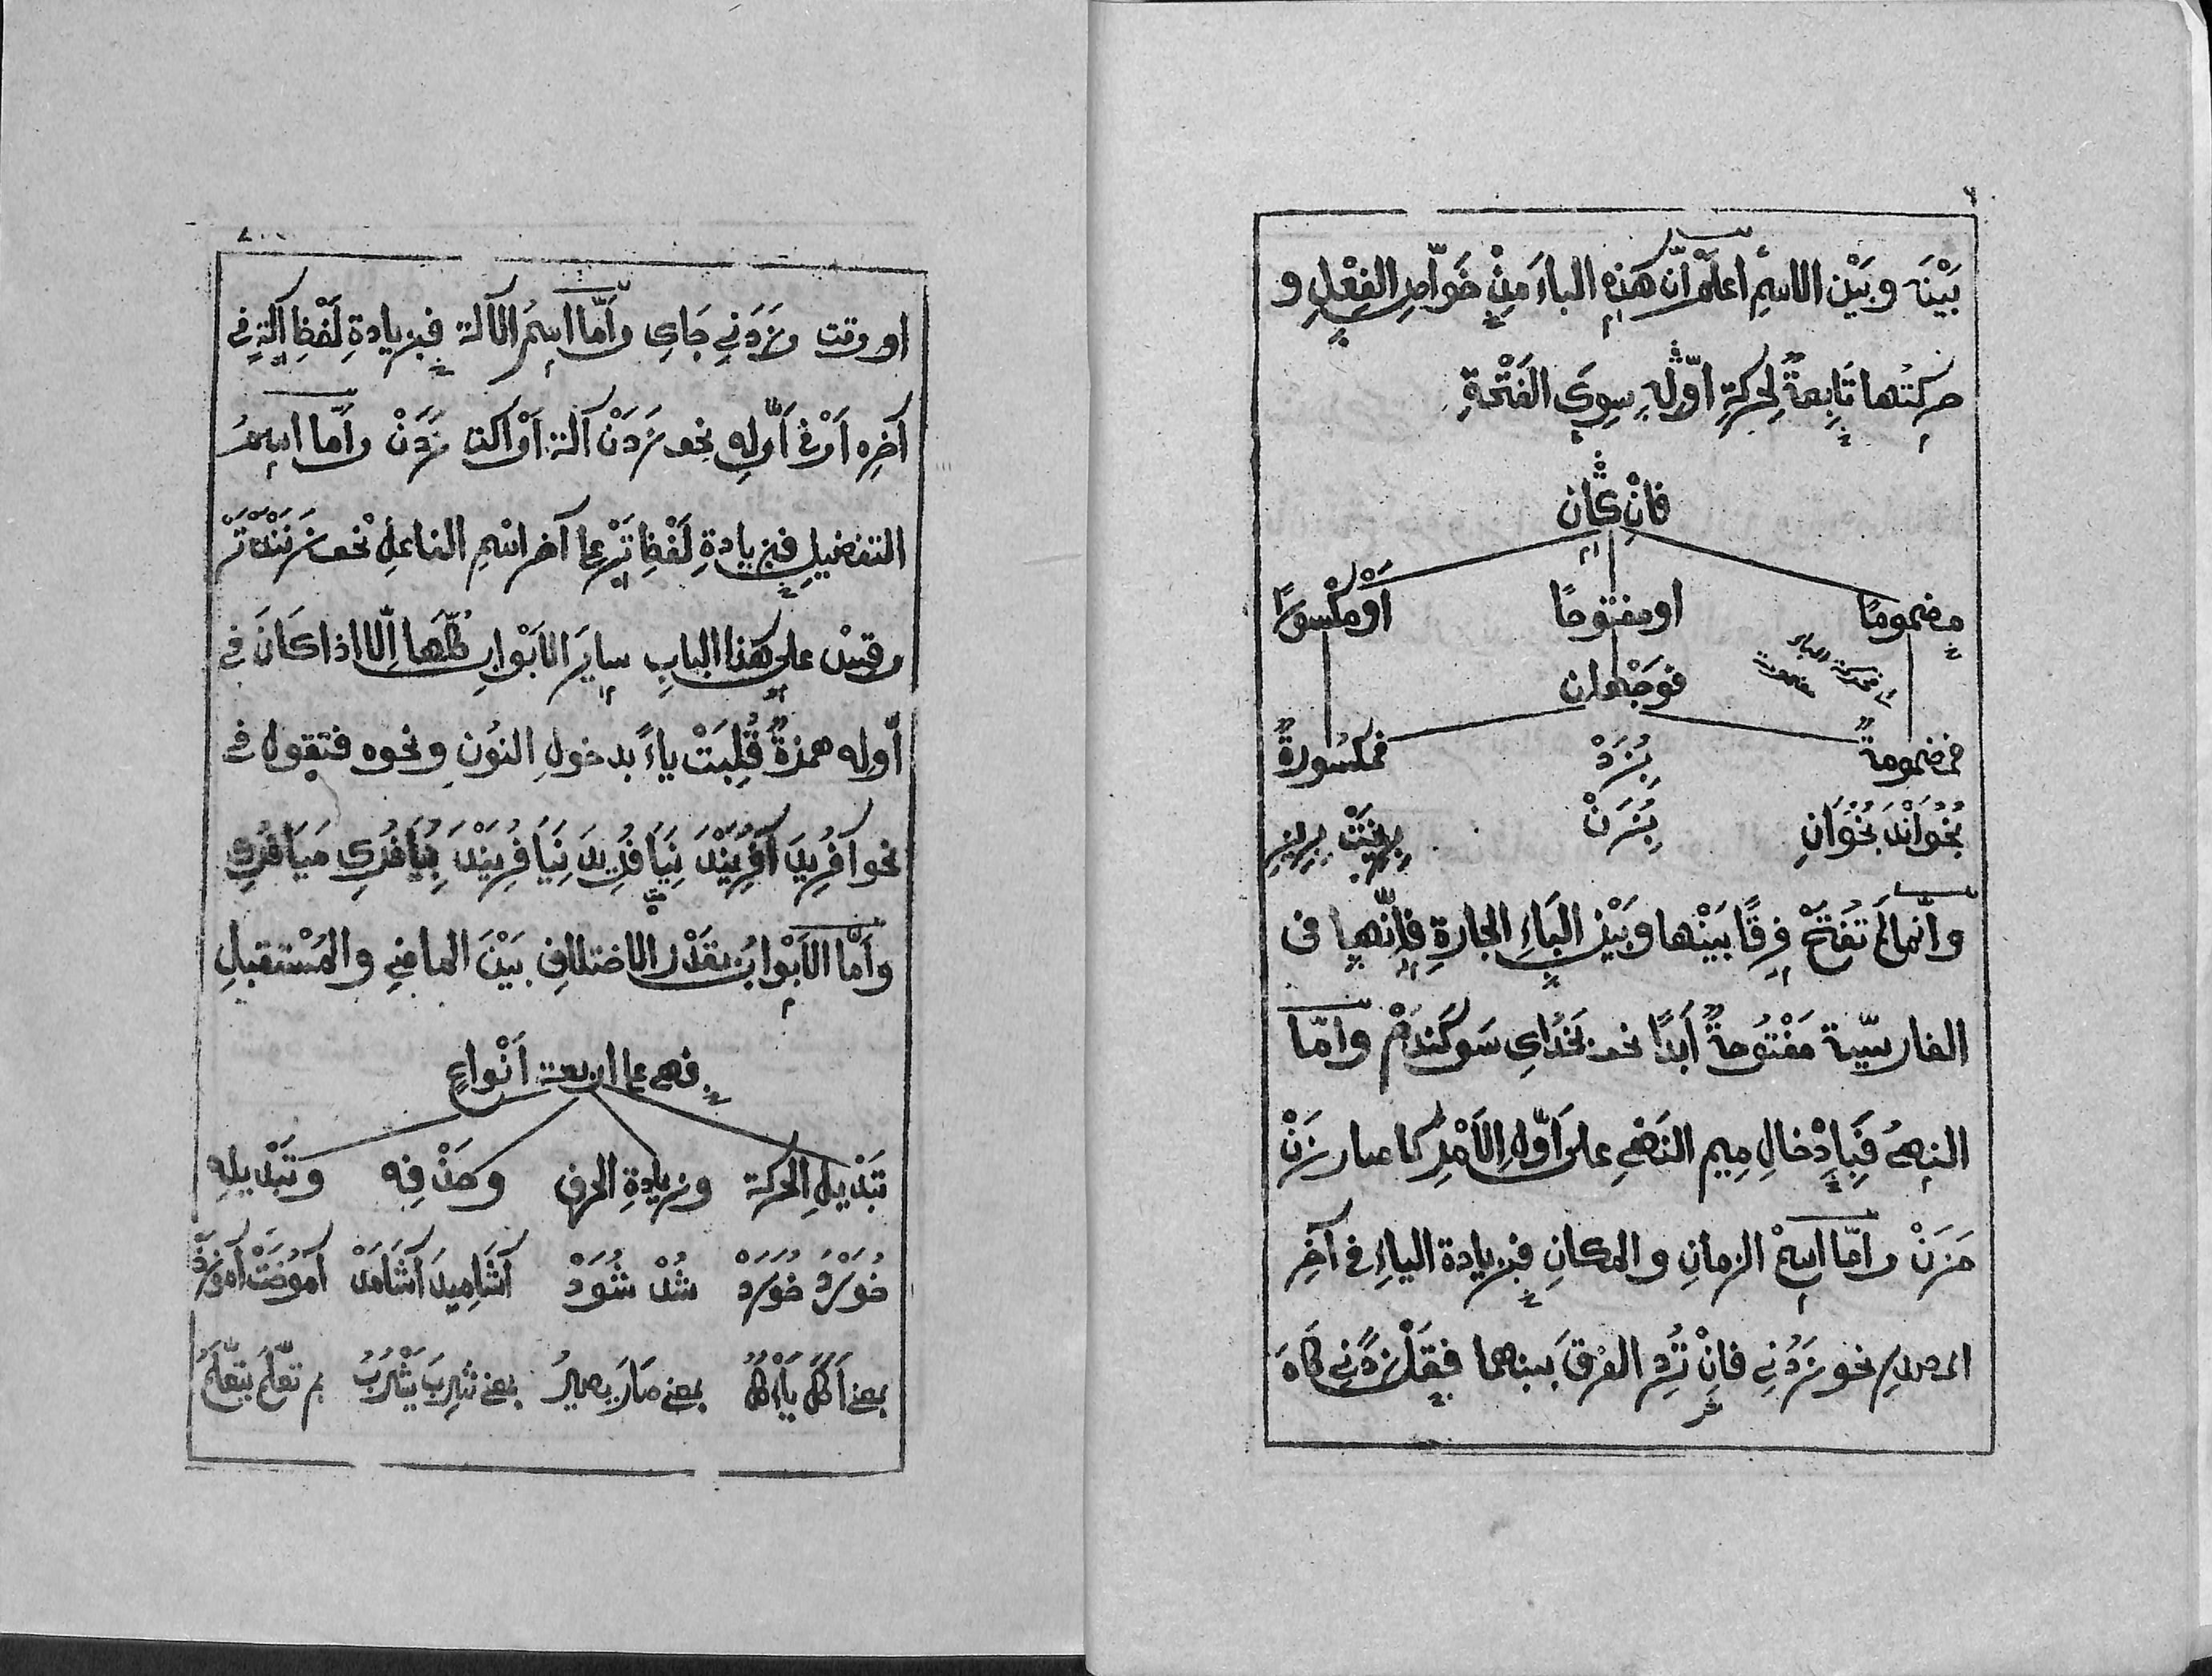 ٦
بَيْنَهُ وبَيْنَ الاسْمِ اعلَمْ اَنَّ هَذِهِ الباءَ مِنْ خَواصِ الفِعْلِ و
حركتُها تَابِعةٌ لِحركةِ اَوَّلِهِ سِوَى الفَتْحَةِ
فانْ كَانَ
مضمومًا اومفتوحًا اَوْ مكسورًا
فوَجْهان
فمضمومةٌ فمكسُورةٌ
بِزَدْ
بُخُوانْد بُخُوَانِ بِزَنْ بِرِيخْتْ بِرِيز
وانّما لَمْ تفتَحْ فرقًا بَيْنَها وبَيْنَ البَاءِ الجارةِ فاِنَّها فى
الفارسيّة مَفْتُوحةٌ اَبدًا نحو بَخُدَاى سَوكَنْدَمْ واَمّا
النهىُ فَبِاِدْخالِ مِيم النَهْىِ على اَوَّلِ الاَمْرِ كما صار زَنْ
مَزَنْ واَمّا اسمُ الزمانِ والمكانِ فبزيادة الياءِ فى آخرِ
المصدرِ نحو زَدَنِى فانْ تُرِدِ الفرقَ بينهما فقل زَدَنِى كَاه
او وقت وزَدَنِى جَاى واَمّا اسمُ الآلة فبزيادةِ لَفْظِ آلةٍ فى
آخرِه اَوْ فى اَوّلِهِ نحو زَدَنْ آلة اَوْ آلت زَدَنْ واَمّا اسمُ
التفضيلِ فبزيادةِ لَفْظِ تَرْ على آخر اسْمِ الفاعلِ نحو زَنَنْدَهْ تَرْ
وقِسْ على هَذا البابِ سايَر الاَبْوابِ كُلَّها اِلّا اذا كَانَ فى
اَوّله همزةٌ قُلِبَتْ ياءً بدخولِ النُون ونحوه فتقول فى
نحو آفرِيد آفَرِينَد نِيَافُرِيد نِيَافُرِينَد بِيَافُرِى مَيَافُرِى
واَمّا الاَبْوابُ بقَدْر الاختلافِ بَيْنَ الماضِى والمُسْتقبلِ
فهى على اربعة اَنْواعٍ
تَبْديلِ الحركة وزيادةِ الحرفِ وحذْفِه وتَبْديلِهِ
خُورْد خُورَدْ شُدْ شُوَدْ آشَامِيد آشَامَدْ آمُوخْتْ آمُوزَدْ
بمعنى اَكَلَ يَأْكُلُ بمعنى صَارَ يصيرُ بمعنى شَرِبَ يَشْرَبُ بم تعَلَّمَ يتعَلَّمُ